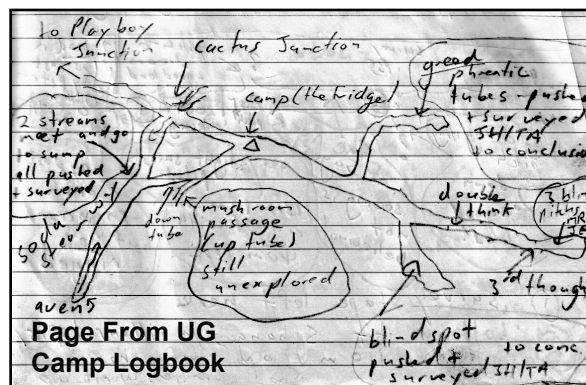 to Playboy
Junction
Cactus Junction
camp (the Fridge)
good
phreatic
tubes - pushed
+ surveyed
JH/TA
to conclusion
2 streams
meet and go
to sump
all pushed
+ surveyed
down
tube
mushroom
passage
(up tube)
still
unexplored
double
think
3 blind
pitches
3rd though
avens
blind spot
pushed +
surveyed JH/TA
to conc
Page From UG
Camp Logbook